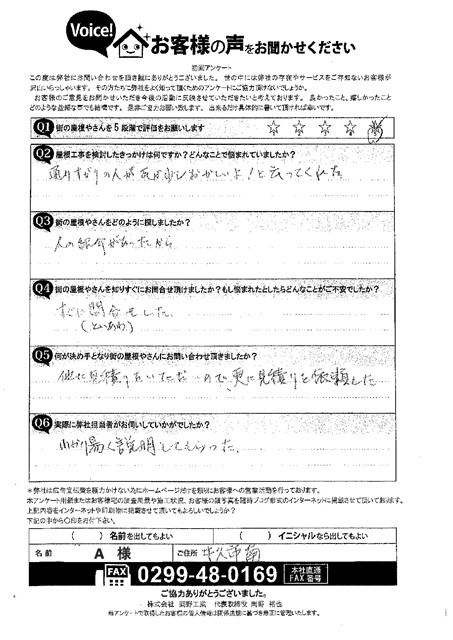 Voice!
お客様の声をお聞かせください
初回アンケート
この度は弊社にお問い合わせを頂き誠にありがとうございました。世の中には弊社の存在やサービスをご存知ないお客様が
沢山いらっしゃいます。その方たちに弊社をよく知って頂くためのアンケートにご協力頂けないでしょうか。
お客様のご意見をお聞かせいただき今後の活動に反映させていただきたいと考えております。良かったこと、嬉しかったこと
どのような些細な事でも結構です。是非ご協力お願い致します。出来るだけ具体的に書いて頂ければ幸いです。
Q1 街の屋根やさんを5段階で評価をお願いします ☆ ☆ ☆ ☆ ☆
Q2 屋根工事を検討したきっかけは何ですか?どんなことで悩まれていましたか?
通りすがりの人が瓦が少しおかしいよ!と云ってくれた
Q3 街の屋根やさんをどのように探しましたか?
人の紹介があったから
Q4 街の屋根やさんを知りすぐにお問合せ頂けましたか?もし悩まれたとしたらどんなことがご不安でしたか?
すぐに問合せした
(といあわ)
Q5 何が決め手となり街の屋根やさんにお問い合わせ頂きましたか?
他に見積りをいただいたので、更に見積りを依頼した
Q6 実際に弊社担当者がお伺いしていかがでしたか?
わかり易く説明してもらった。
*弊社は広告宣伝費を極力かけない為にホームページだけを頼りにお客様への営業活動を行っております。
本アンケート用紙またはお客様宅の調査風景や施工状況、お客様の顔写真を随時ブログ形式のインターネットに掲載させて頂いております。
上記内容をインターネットや印刷物に掲載させて頂いてもよろしいでしょうか?
下記の中から〇印をお付下さい。
( )名前を出してもよい ( )イニシャルなら出してもよい
名前 A 様 ご住所 牛久市南
FAX 0299-48-0169 本社直通 FAX番号
ご協力ありがとうございました。
株式会社 両野工業 代表取締役 両野 裕也
当アンケートで取得したお客様の個人情報は関係法規に基づき厳重に管理いたします。